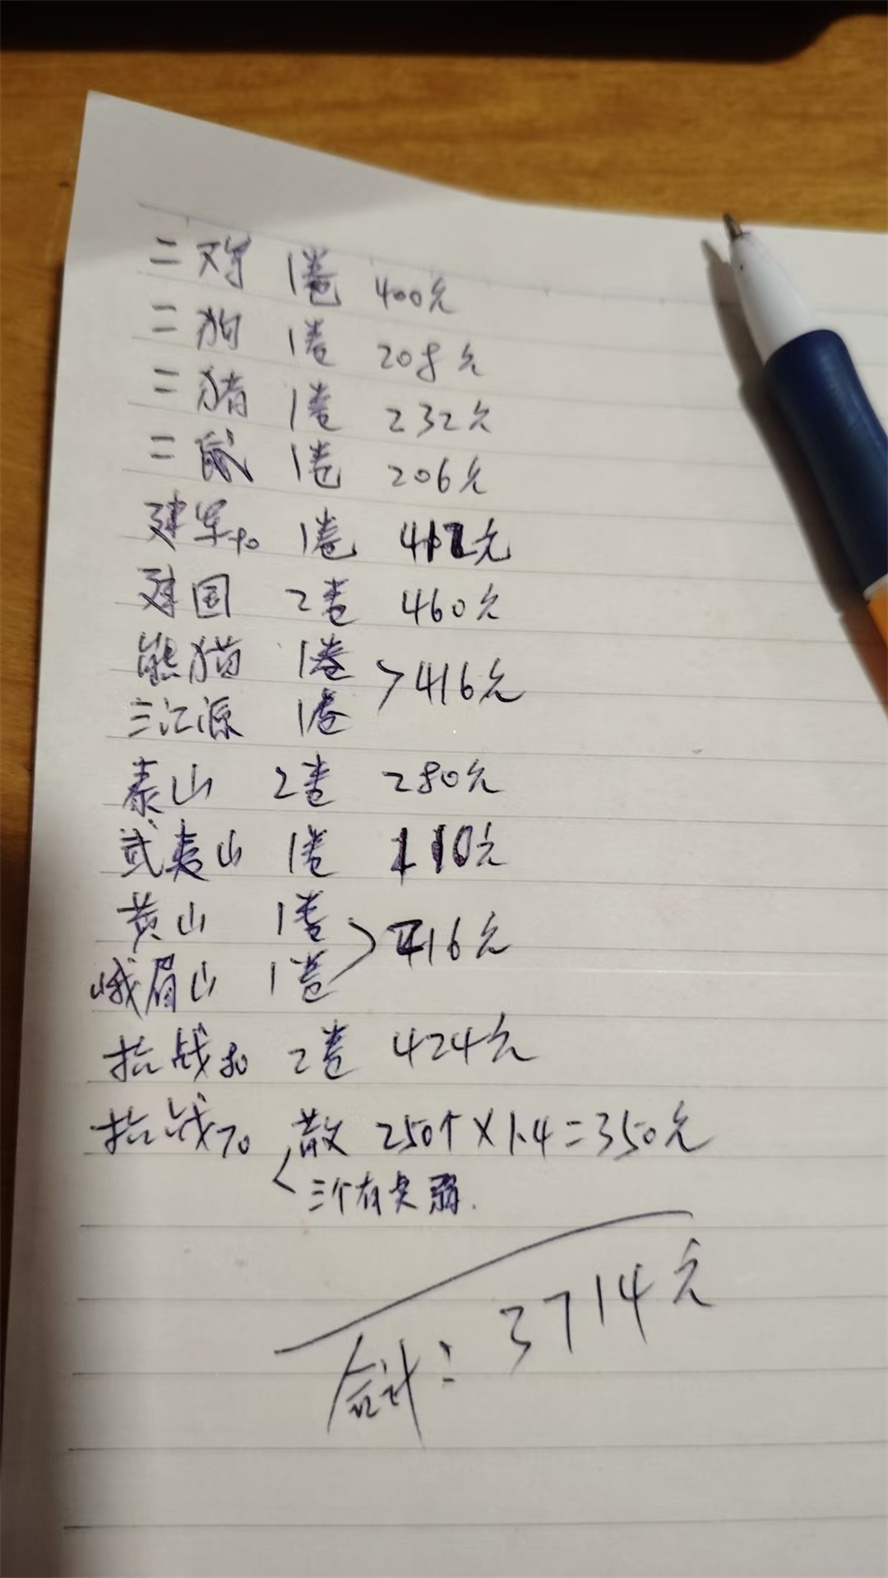 二鸡 1卷 400元
二狗 1卷 208元
二猪 1卷 232元
二鼠 1卷 206元
建军90 1卷 412元
建国 2卷 460元
熊猫 1卷 >416元
三江源 1卷
泰山 2卷 280元
武夷山 1卷 110元
黄山 1卷 >416元
峨眉山 1卷
抗战80 2卷 424元
抗战70 散 250个×1.4=350元
<三个有失弱.
合计:3714元